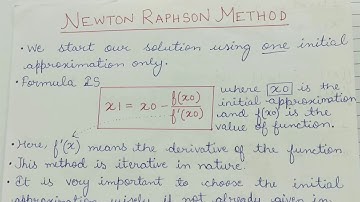 NEWTON RAPHSON METHOD
• We start our solution using one initial
approximation only.
• Formula is
x1 = x0 - f(x0)/f'(x0)
where x0 is the
initial approximation
and f(x0) is the
value of function.
• Here, f'(x) means the derivative of the function.
• This method is iterative in nature.
• It is very important to choose the initial
approximation wisely if not already given in